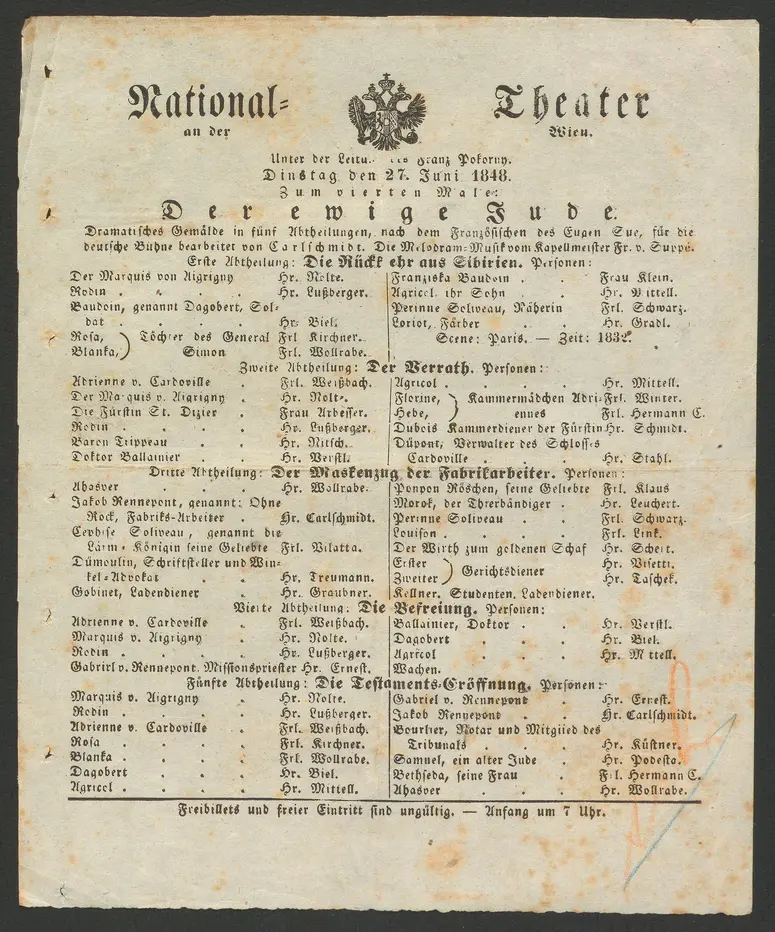 National- Theater
an der Wien.
Unter der Franz Pokorny.
Dinstag den 27. Juni 1848.
Zum vierten Male:
Der ewige Jude.
Dramatisches Gemälde in fünf Abtheilungen, nach dem Französischen des Eugen Sue, für die
deutsche Bühne bearbeitet von Carlschmidt. Die Melodram-Musik vom Kapellmeister Fr. v. Suppé.
Erste Abtheilung: Die Rückkehr aus Sibirien. Personen:
Der Marquis von Aigrigny . Hr. Nolte.
Rodin . . . . Hr. Lußberger.
Baudoin, genannt Dagobert, Sol-
dat . . . . Hr. Biel.
Rosa, } Töchter des General Frl. Kirchner.
Blanka, } Simon Frl. Wollrabe.
Franziska Baudoin . . Frau Klein.
Agricol, ihr Sohn . . Hr. Mittell.
Perinne Soliveau, Näherin Frl. Schwarz.
Loriot, Färber . . Hr. Gradl.
Scene: Paris. — Zeit: 1832.
Zweite Abtheilung: Der Verrath. Personen:
Adrienne v. Cardoville . Frl. Weißbach.
Der Marquis v. Aigrigny . Hr. Nolte.
Die Fürstin St. Dizier . Frau Arbesser.
Rodin . . . . Hr. Lußberger.
Baron Trippeau . . Hr. Nitsch.
Doktor Ballainier . . Hr. Verstl.
Agricol . . . . Hr. Mittell.
Florine, } Kammermädchen Adri- Frl. Winter.
Hebe, } ennes Frl. Hermann C.
Dubois Kammerdiener der Fürstin Hr. Schmidt.
Düpont, Verwalter des Schlosses
Cardoville . . . Hr. Stahl.
Dritte Abtheilung: Der Maskenzug der Fabrikarbeiter. Personen:
Ahasver . . . Hr. Wollrabe.
Jakob Rennepont, genannt: Ohne
Rock, Fabriks-Arbeiter . Hr. Carlschmidt.
Cephise Soliveau, genannt die
Lärm-Königin seine Geliebte Frl. Vilatta.
Dümoulin, Schriftsteller und Win-
kel-Advokat . . Hr. Treumann.
Gobinet, Ladendiener . Hr. Graubner.
Ponpon Röschen, seine Geliebte Frl. Klaus
Morok, der Thierbändiger . Hr. Leuchert.
Perinne Soliveau . . Frl. Schwarz.
Louison . . . . Frl. Link.
Der Wirth zum goldenen Schaf Hr. Scheit.
Erster } Gerichtsdiener Hr. Visetti.
Zweiter } Hr. Taschek.
Kellner. Studenten. Ladendiener.
Vierte Abtheilung: Die Befreiung. Personen:
Adrienne v. Cardoville . Frl. Weißbach.
Marquis v. Aigrigny . Hr. Nolte.
Rodin . . . . Hr. Lußberger.
Gabriel v. Rennepont, Missionspriester Hr. Ernest.
Ballainier, Doktor . . Hr. Verstl.
Dagobert . . . Hr. Biel.
Agricol . . . Hr. Mittell.
Wachen.
Fünfte Abtheilung: Die Testaments-Eröffnung. Personen:
Marquis v. Aigrigny . Hr. Nolte.
Rodin . . . . Hr. Lußberger.
Adrienne v. Cardoville . Frl. Weißbach.
Rosa . . . . Frl. Kirchner.
Blanka . . . . Frl. Wollrabe.
Dagobert . . . Hr. Biel.
Agricol . . . . Hr. Mittell.
Gabriel v. Rennepont . Hr. Ernest.
Jakob Rennepont . . Hr. Carlschmidt.
Bourlier, Notar und Mitglied des
Tribunals . . . Hr. Küstner.
Samuel, ein alter Jude . Hr. Podesta.
Bethseda, seine Frau . Frl. Hermann C.
Ahasver . . . Hr. Wollrabe.
Freibillets und freier Eintritt sind ungültig. — Anfang um 7 Uhr.